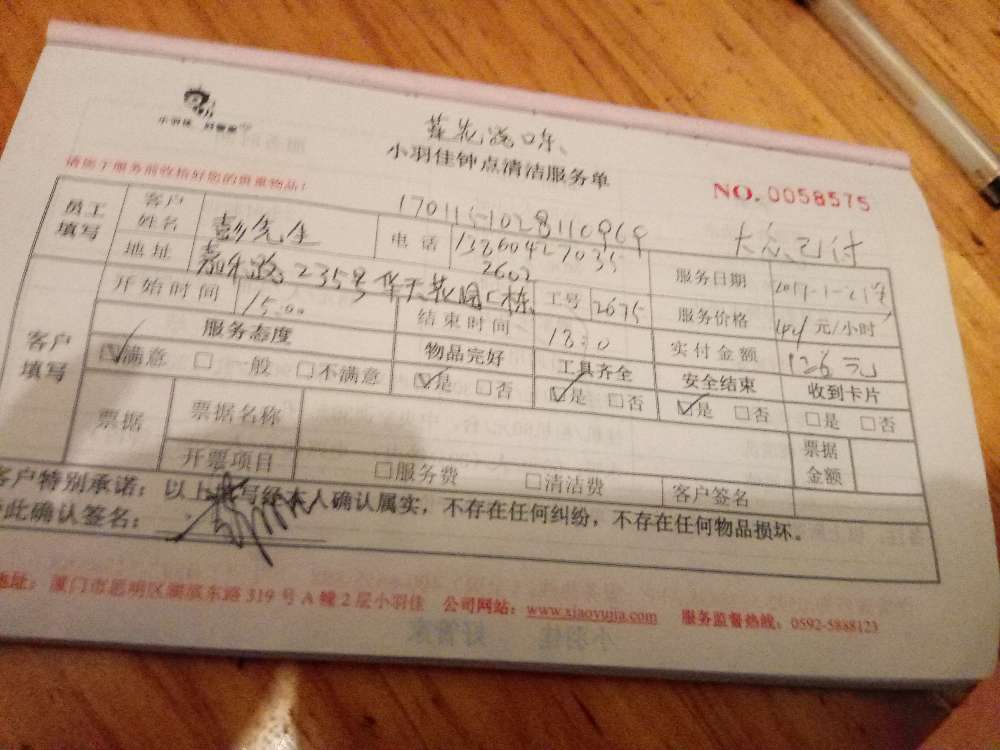 小羽佳 好管家
小羽佳钟点清洁服务单
请您于服务前收拾好您的贵重物品！
NO.0058575
员工填写 客户姓名 彭先生 电话 13860427035 大众已付
地址 235号 2602 工号 2675 服务日期
开始时间 15:00 结束时间 服务价格 元/小时
客户填写 服务态度 物品完好 工具齐全 实付金额 126元
☑满意 □一般 □不满意 ☑是 □否 ☑是 □否 安全结束 ☑是 □否 收到卡片 □是 □否
票据 票据名称 票据金额
开票项目 □服务费 □清洁费 客户签名
客户特别承诺：以上填写经本人确认属实，不存在任何纠纷，不存在任何物品损坏。
此确认签名：
地址：厦门市思明区湖滨东路319号A幢2层小羽佳 公司网站：www.xiaoyujia.com 服务监督热线：0592-5888123